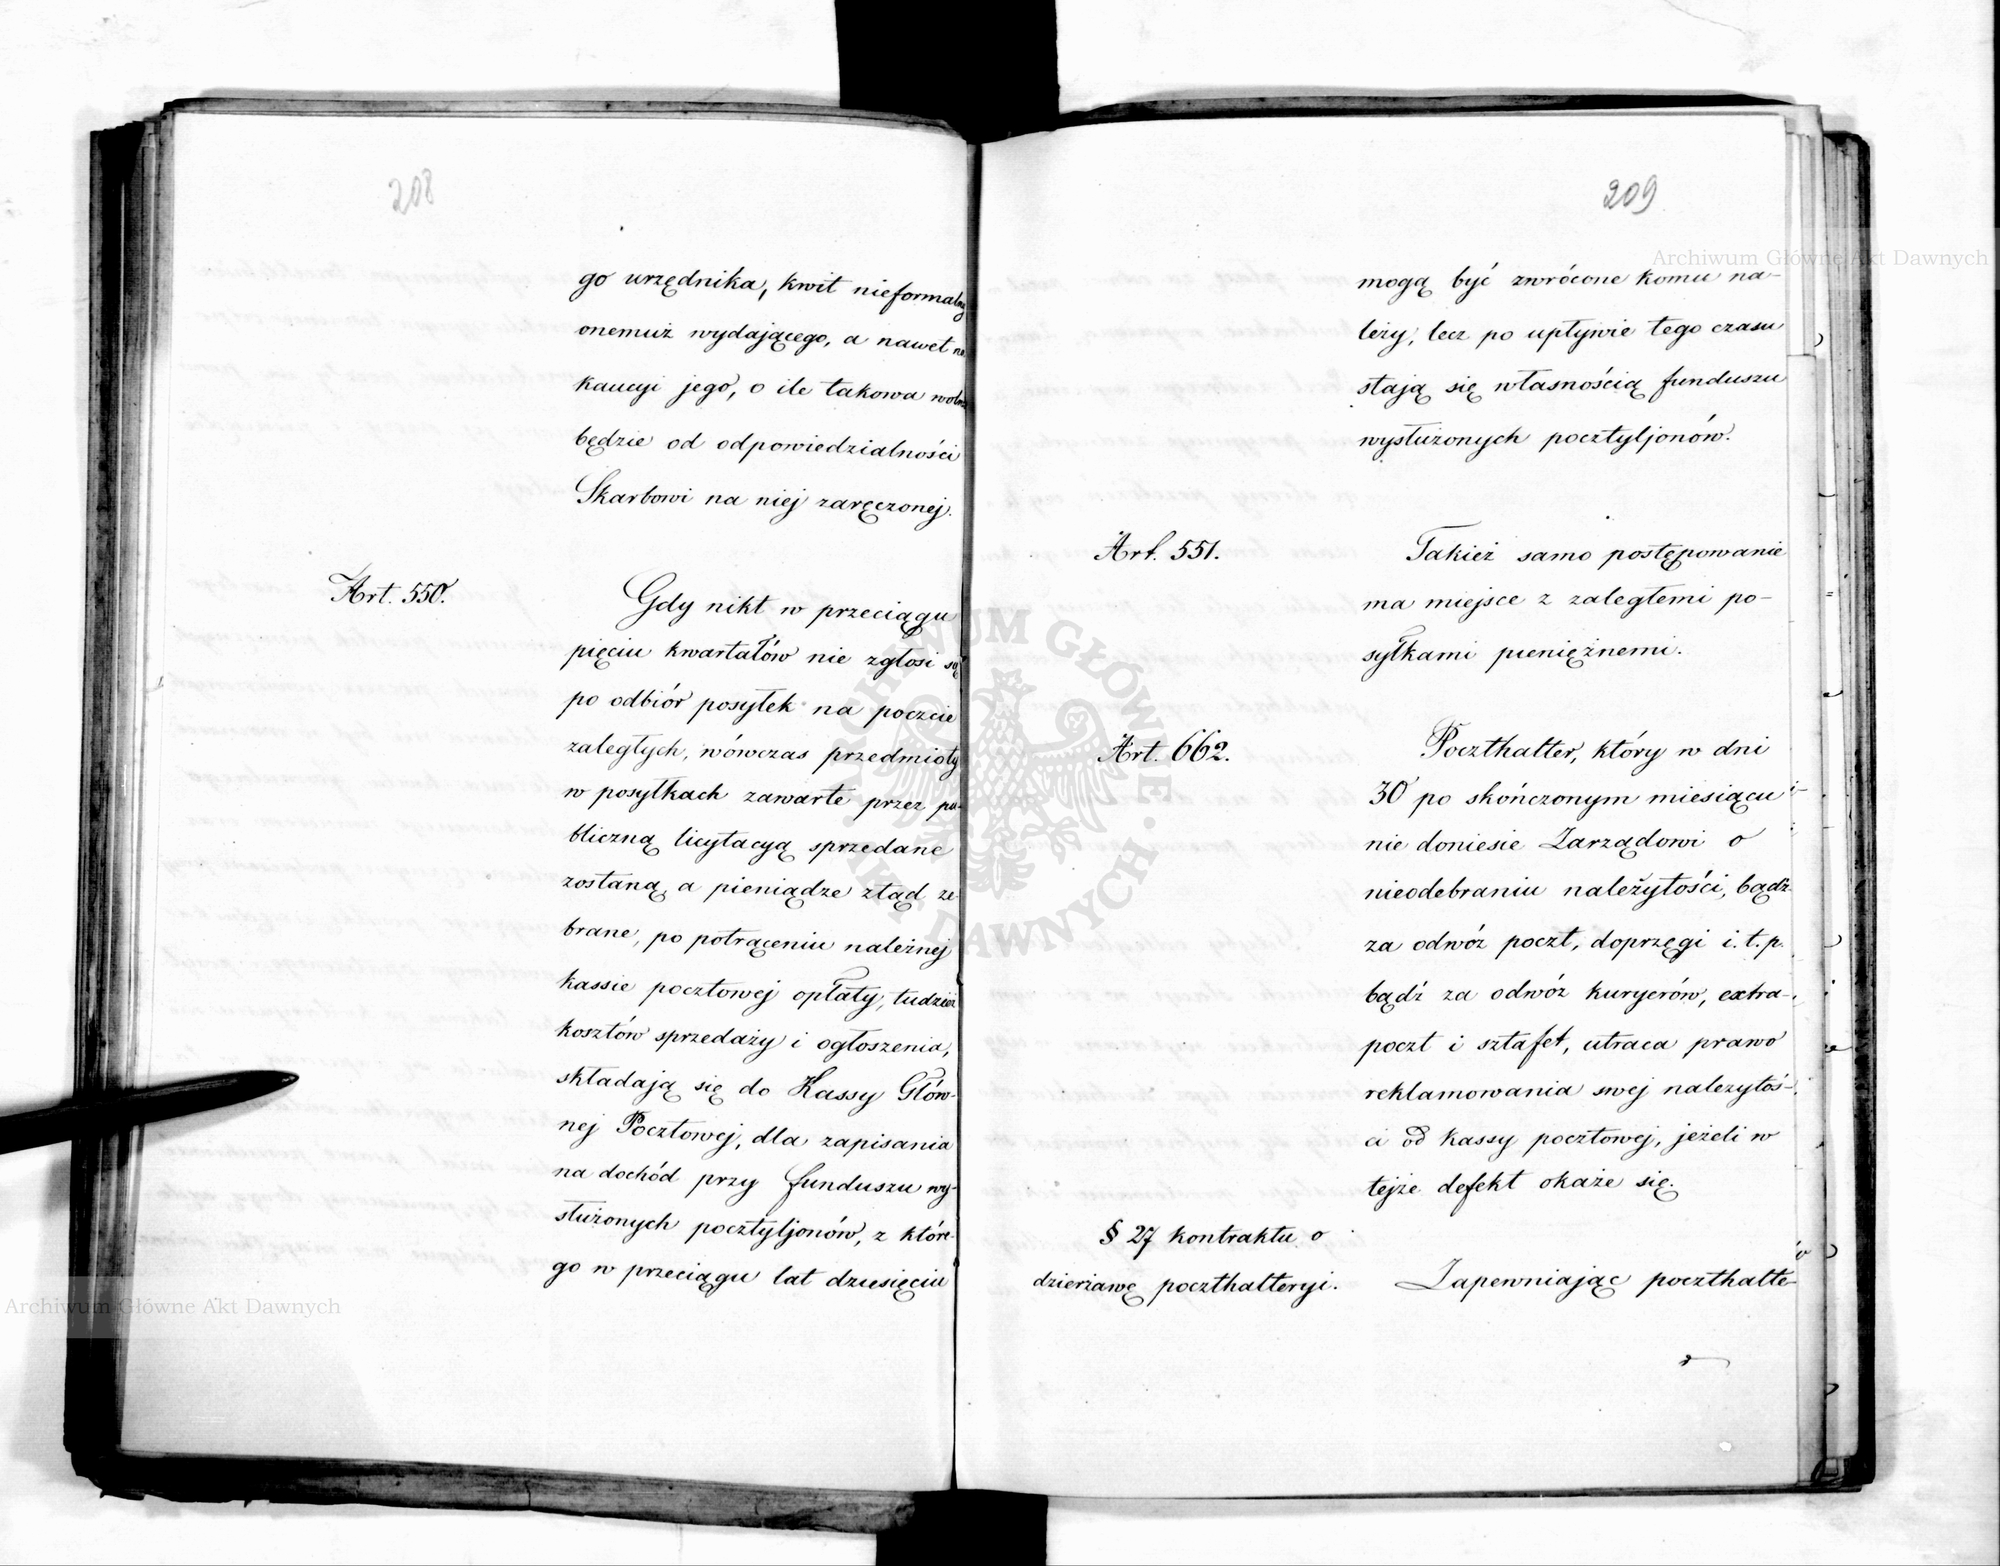 208
go urzędnika, kwit nieformalny
onemuż wydającego, a nawet na
kaucyi jego, o ile takowa wolna
będzie od odpowiedzialności
Skarbowi na niej zaręczonej.
Art. 550.
Gdy nikt w przeciągu
pięciu kwartałów nie zgłosi się
po odbiór posyłek na poczcie
zaległych, wówczas przedmioty
w posyłkach zawarte przez pu-
bliczną licytacyą sprzedane
zostaną, a pieniądze ztąd ze-
brane, po potrąceniu należnej
kassie pocztowej opłaty, tudzież
kosztów sprzedaży i ogłoszenia,
składają się do Kassy Głów-
nej Pocztowej, dla zapisania
na dochód przy funduszu wy-
służonych pocztyljonów, z które-
go w przeciągu lat dziesięciu
209
mogą być zwrócone komu na-
leży, lecz po upływie tego czasu
stają się własnością funduszu
wysłużonych pocztyljonów.
Art. 551.
Takież samo postępowanie
ma miejsce z zaległemi po-
syłkami pieniężnemi.
Art. 662.
Poczthalter, który w dni
30 po skończonym miesiącu
nie doniesie Zarządowi o
nieodebraniu należytości, bądź
za odwóz poczt, doprzęgi i.t.p.
bądź za odwóz kuryerów, extra-
poczt i sztafet, utraca prawo
reklamowania swej należytoś-
ci od kassy pocztowej, jeżeli w
tejże defekt okaże się.
§ 27 kontraktu o
dzierżawę poczthalteryi.
Zapewniając poczthalte-
Archiwum Główne Akt Dawnych
Archiwum Główne Akt Dawnych
ARCHIWUM GŁÓWNE AKT DAWNYCH